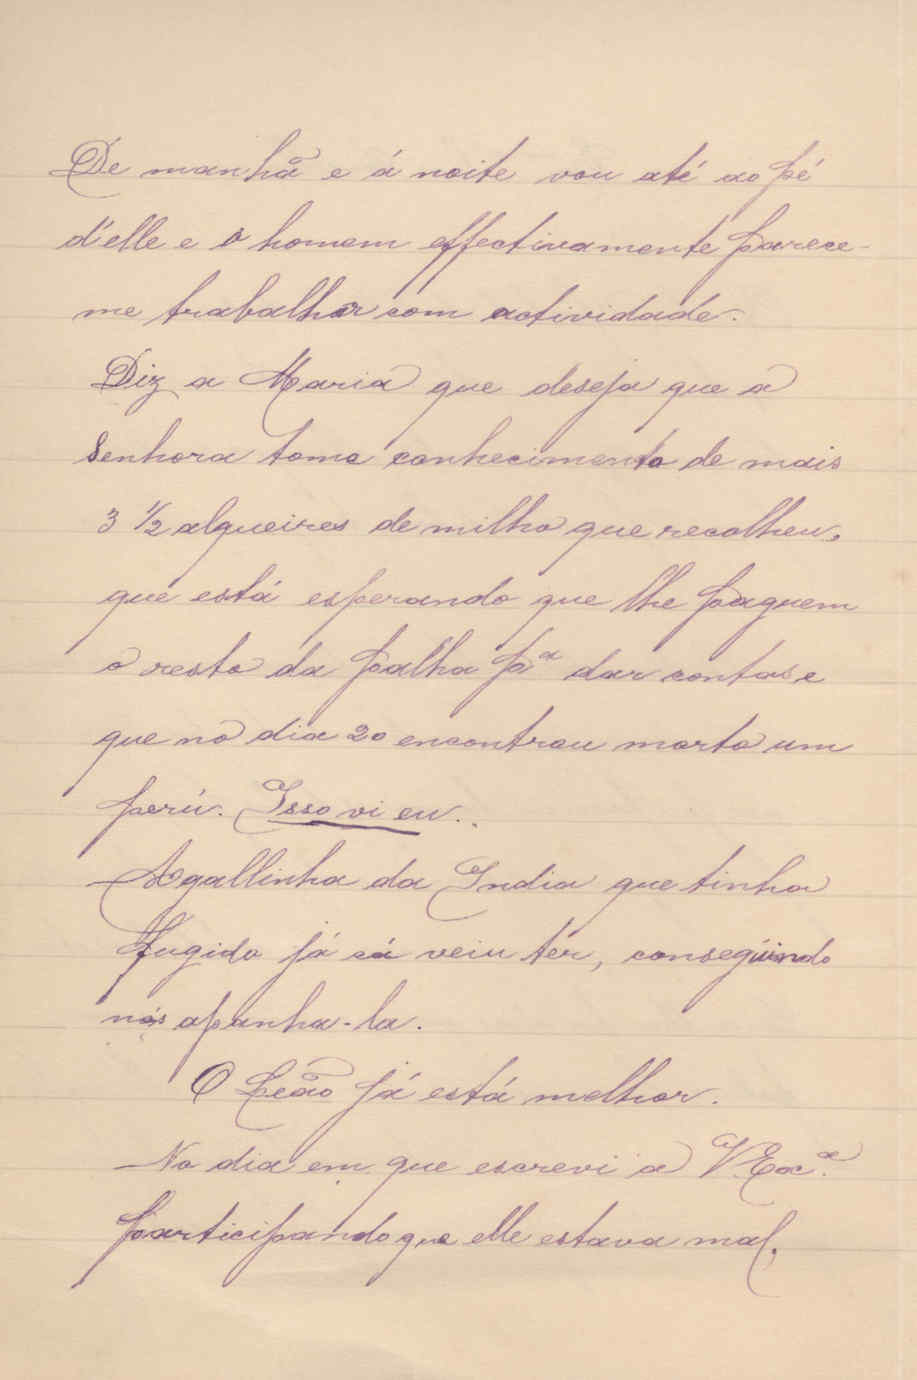 De manhã e á noite vou até ao pé
d'elle e o homem effectivamente parece-
me trabalhar com actividade.
Diz a Maria que deseja que a
Senhora tome conhecimento de mais
3 1/2 alqueires de milho que recolheu,
que está esperando que lhe paguem
o resto da palha pª dar contas, e
que no dia 20 encontrou morto um
perú. Isso vi eu..
A gallinha da India que tinha
fugido já cá veiu têr, conseguindo
nós apanha-la.
O Leão já está melhor.
No dia em que escrevi a V. Exª.
participando que elle estava mal,